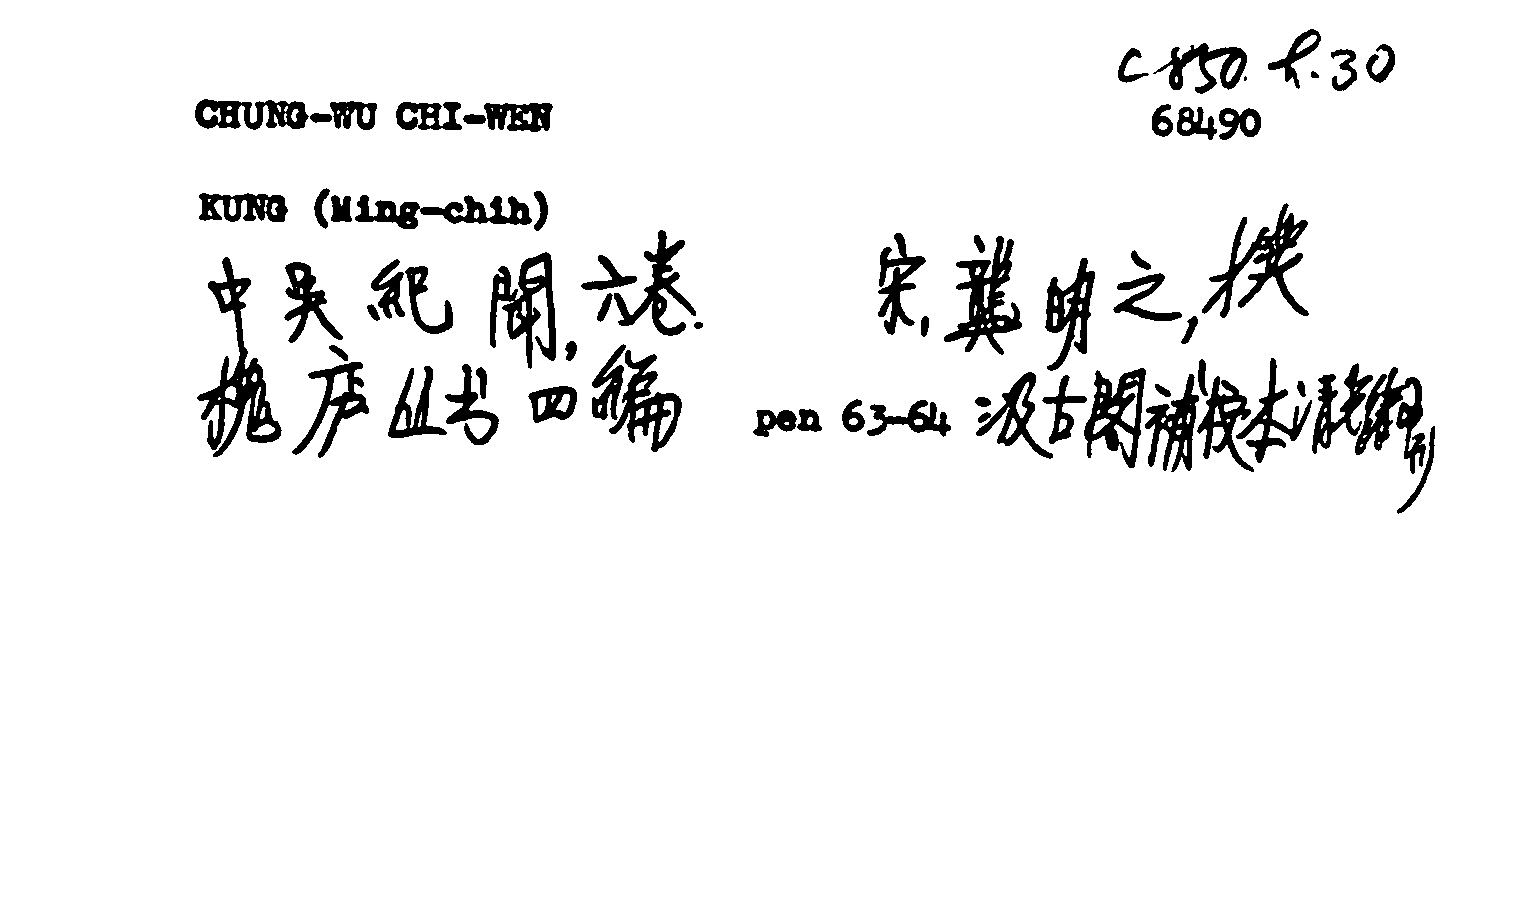 C 850. h. 30
CHUNG-WU CHI-WEN
68490
KUNG (Ming-chih)
中吳紀聞, 六卷. 宋, 龔明之, 撰
槐庐丛书四編 pen 63-64 汲古閣補校本清